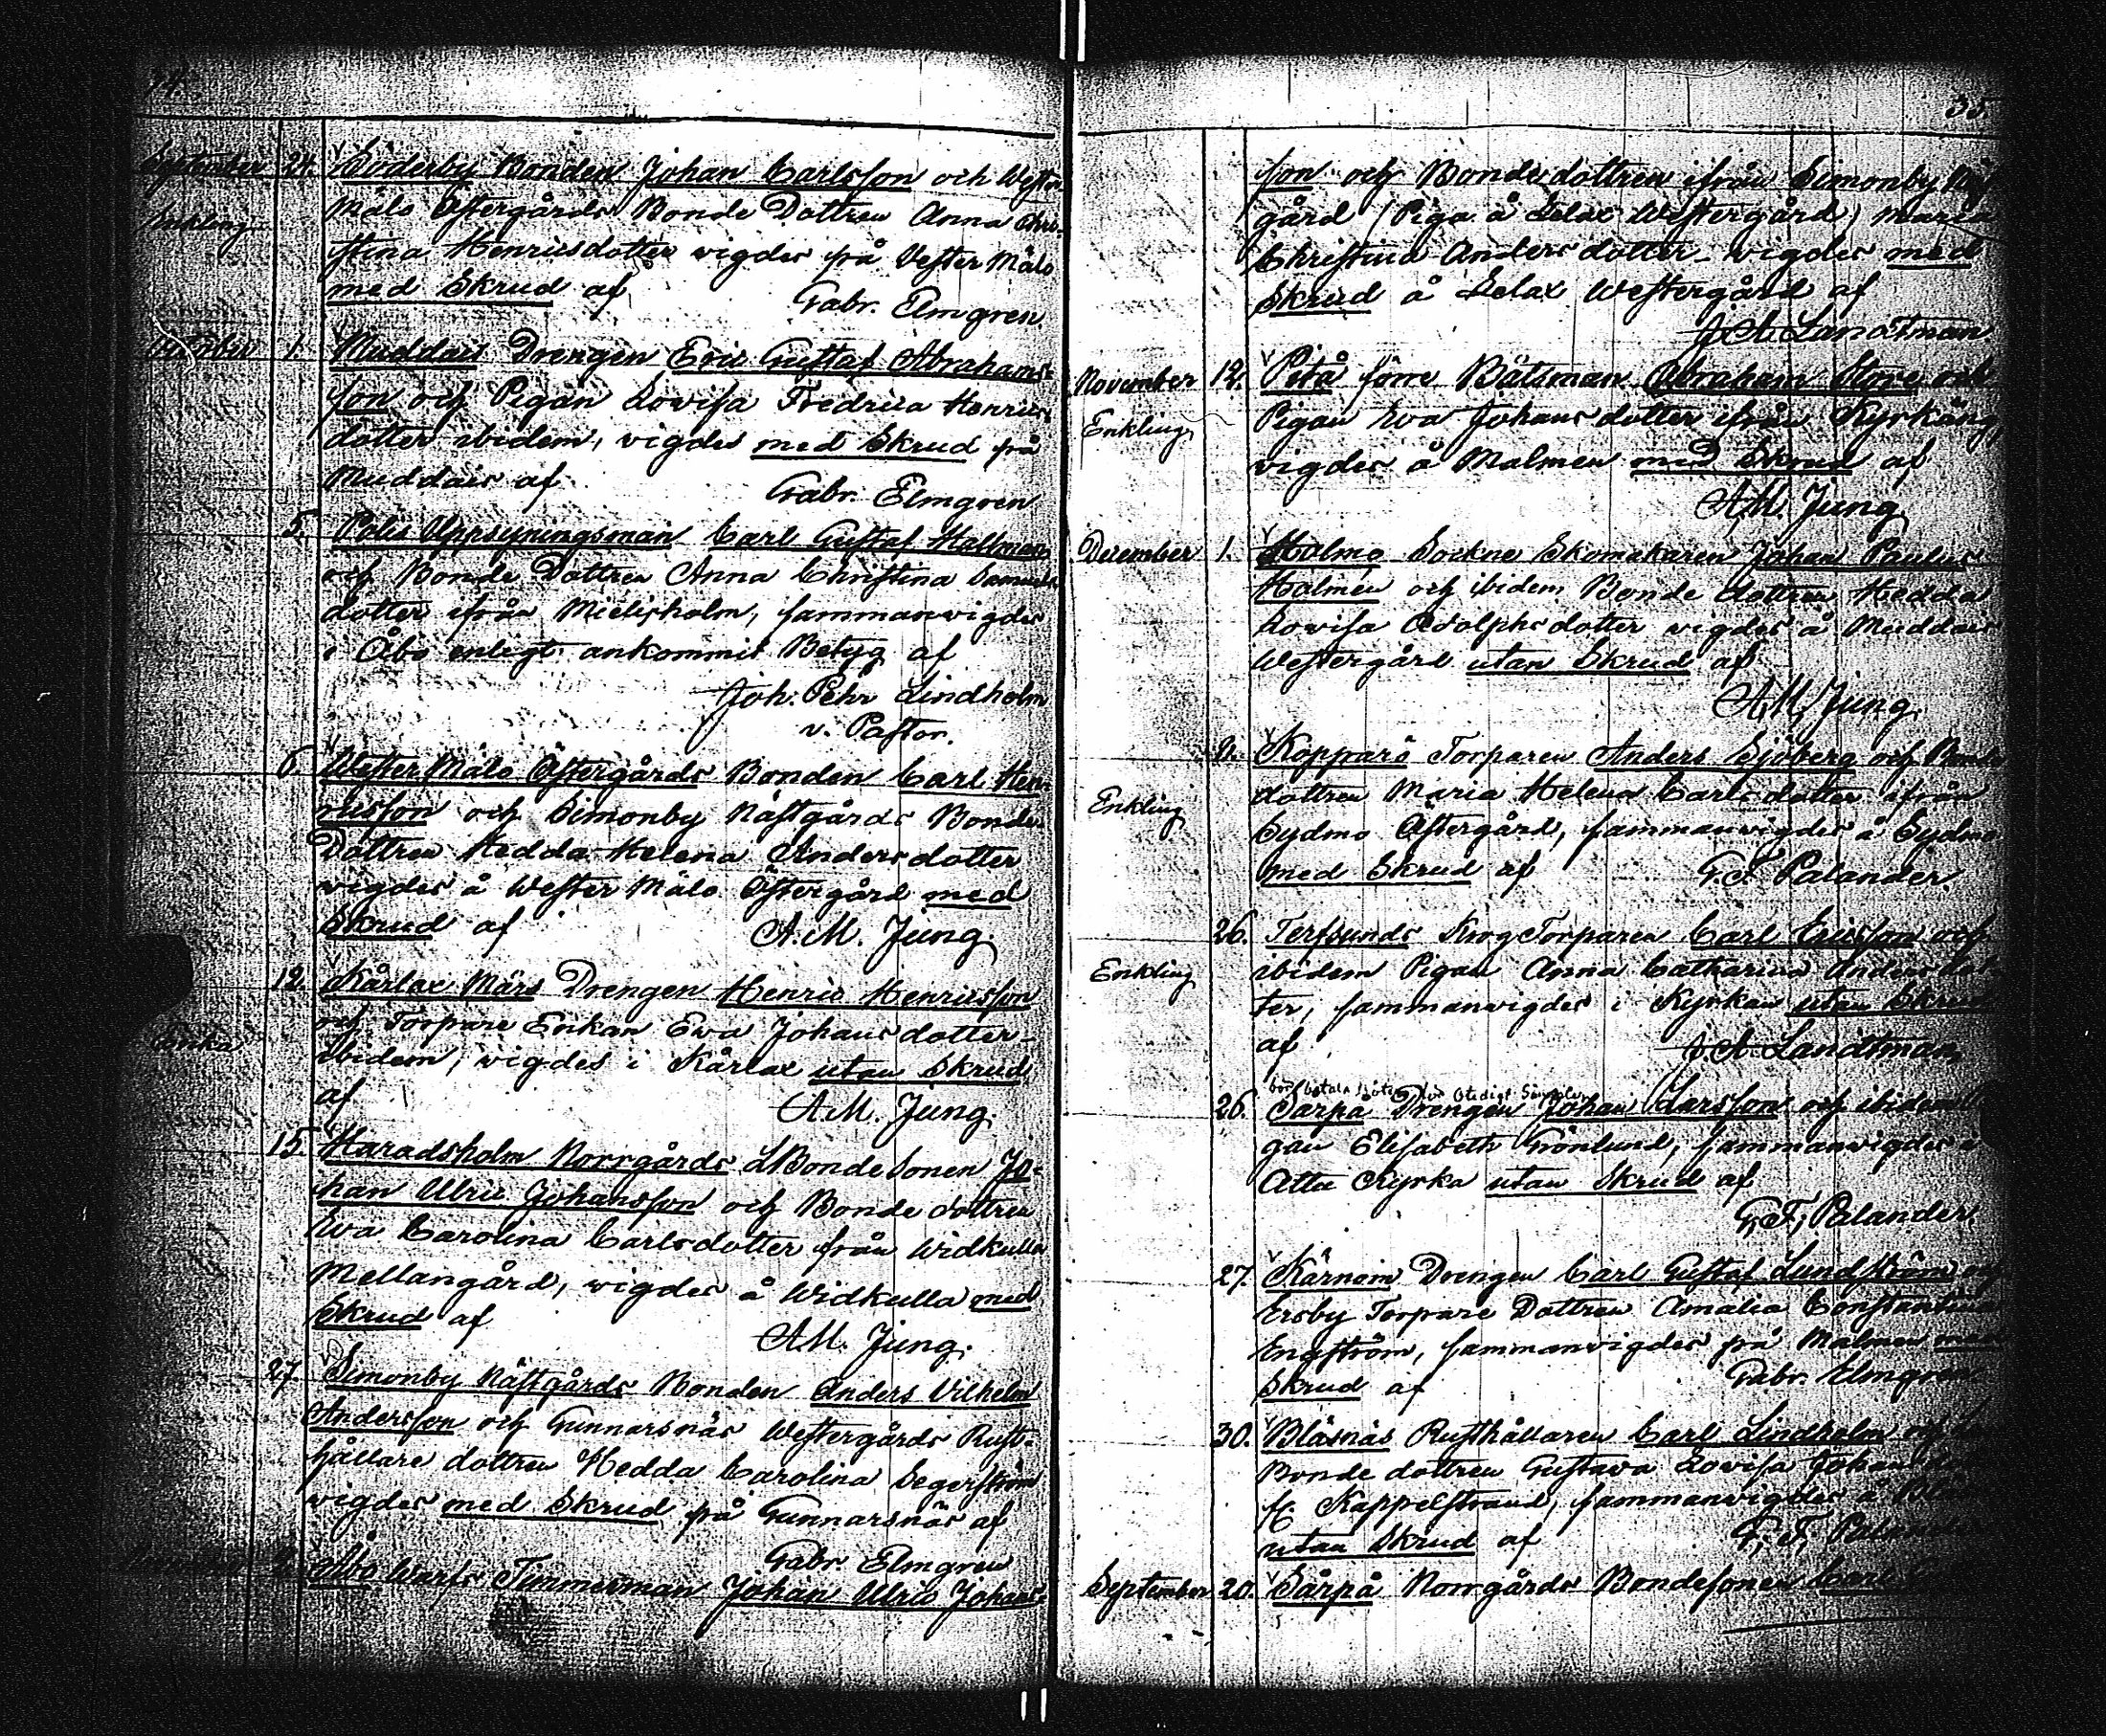 September 24. Söderby Bonden Johan Carlsson och Wester
Enkling Mälo Östergårds Bonde Dottren Anna Chri-
stina Henricsdotter vigdes på Vester Mälo
med Skrud af Gabr. Elmgren
October 1. Muddais Drengen Eric Gustaf Abrahams-
son och Pigan Lovisa Fredrica Henrics
dotter ibidem, vigdes med Skrud på
Muddais af Gabr. Elmgren
5. Polis Uppsyningsman Carl Gustaf Hallman
och Bonde Dottren Anna Christina Samuels
dotter ifrån Mielisholm, sammanvigdes
i Åbo enligt ankommit Betyg af
Joh. Pehr Lindholm
v. Pastor.
6. Wester Mälo Östergårds Bonden Carl Hen-
ricsson och Simonby Nästgårds Bonde
Dottren Hedda Helena Andersdotter
vigdes å Wester Mälo Östergård med
Skrud af A. M. Jung.
12. Kårlax Mårs Drengen Henric Henricsson
och Torpare Enkan Ewa Johansdotter
Enka ibidem, vigdes i Kårlax utan Skrud
af A. M. Jung.
15. Haradsholm Norrgårds Bonde Sonen Jo-
han Ulric Johansson och Bonde dottren
Eva Carolina Carlsdotter från Widkulla
Mellangård, vigdes å Widkulla med
Skrud af A. M. Jung.
27. Simonby Nästgårds Bonden Anders Vilhelm
Andersson och Gunnarsnäs Westergårds Rust-
hållare dottren Hedda Carolina Segerström
vigdes med Skrud på Gunnarsnäs af
Gabr. Elmgren
2. Åbo Warfs Timmerman Johan Ulric Johans-
35
son och Bondedottren ifrån Simonby Näst
gård (Piga å Lelax Westergård) Maria
Christina Andersdotter vigdes med
Skrud å Lelax Westergård af
J. A. Landtman
November 12. Pitå förre Båtsman Abraham Store och
Enkling Pigan Eva Johansdotter ifrån Kyrkäng,
vigdes å Malmen med Skrud af
A. M. Jung
December 1. Holmo Sockne Skomakaren Johan Paulus
Holmén och ibidem Bonde dottren Hedda
Lovisa Adolphsdotter vigdes å Muddais
Westergård utan Skrud af
A. M. Jung.
Kopparö Torparen Anders Sjöberg och Bonde
Enkling dottren Maria Helena Carlsdotter ifrån
Sydmo Östergård, sammanvigdes å Sydmo
med Skrud af G. F. Palander.
26. Terfsunds Krog Torparen Carl Ericsson och
Enkling ibidem Pigan Anna Catharina Andersdot
ter, sammanvigdes i Kyrkan utan Skrud
af J. A. Landtman
26. Sarpå Drengen Johan Larsson och ibidem
gan Elisabeth Grönlund, sammanvigdes
Attu Kyrka utan Skrud af
G. F. Palander.
27. Kärnäim Drengen Carl Gustaf Lundström
Ersby Torpare Dottren Amalia Constantina
Engström, sammanvigdes på Malmen
Skrud af Gabr. Elmgren
30. Bläsnäs Rusthållaren Carl Lindholm och
Bonde dottren Gustava Lovisa Johans
fr. Kappelstrand, sammanvigdes å
utan Skrud af G. F. Palander
September 20. Sårpå Norrgårds Bondesonen Carl